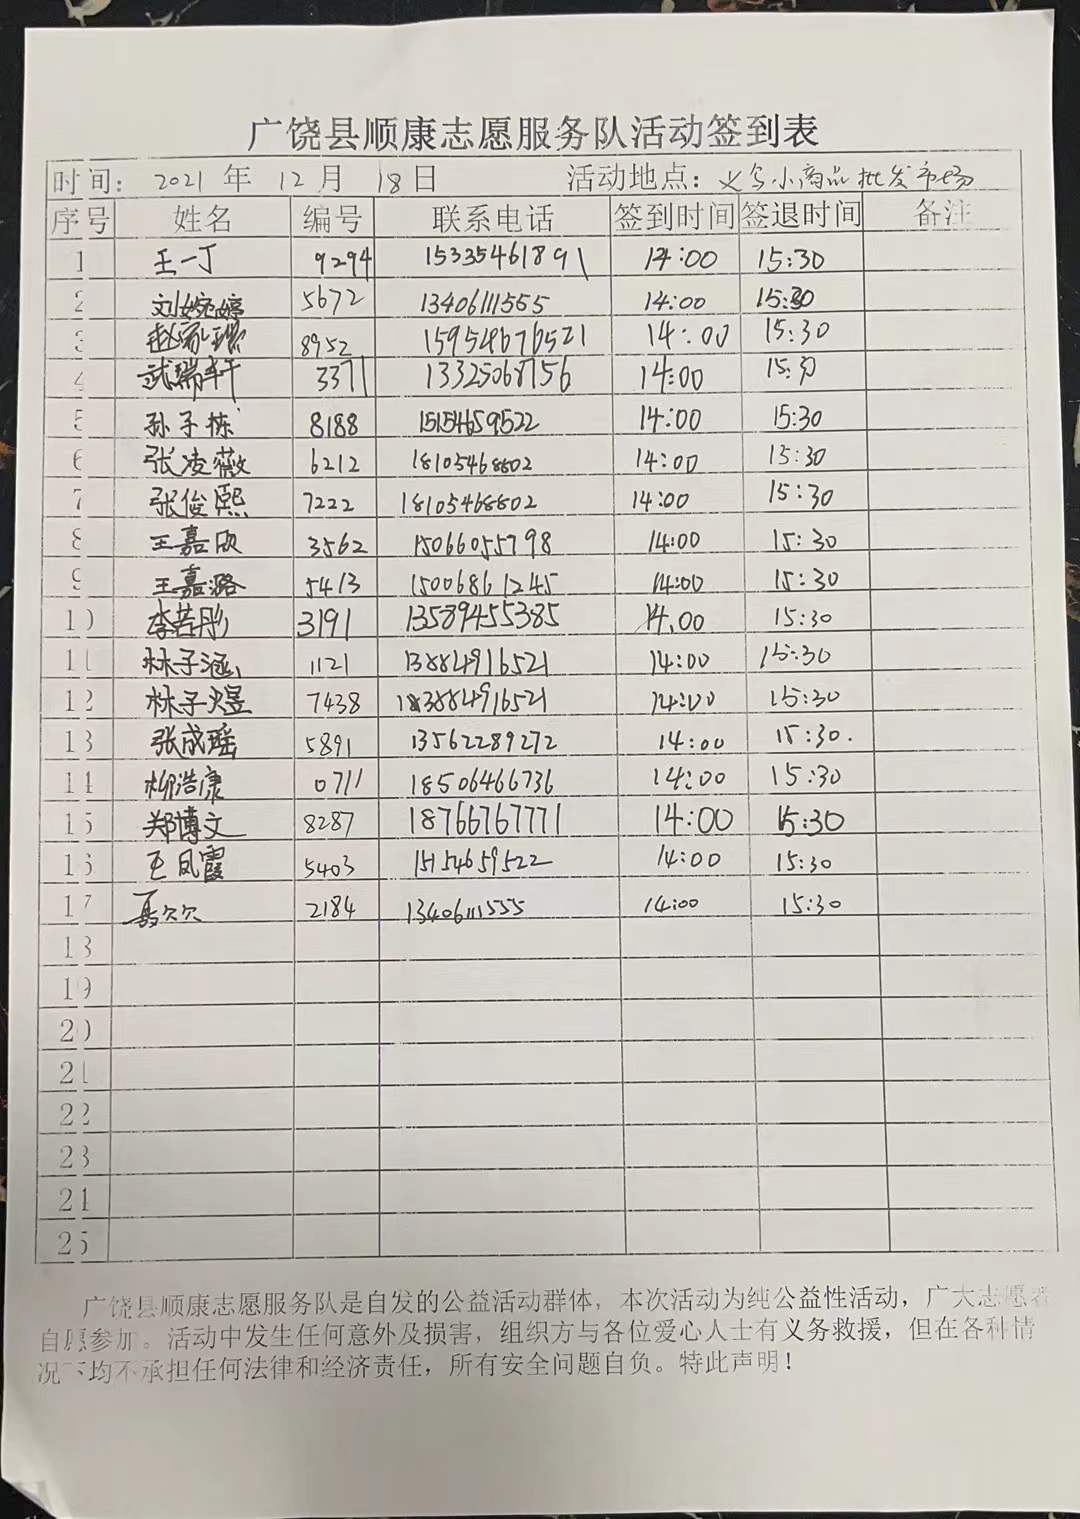 广饶县顺康志愿服务队活动签到表
时间: 2021 年 12 月 18 日 活动地点: 义乌小商品批发市场
序号 姓名 编号 联系电话 签到时间 签退时间 备注
1 王一丁 9294 15335461891 14:00 15:30
2 刘婉婷 5672 13406111555 14:00 15:30
3 赵 8952 15954676521 14:00 15:30
4 武瑞轩 3371 13325068756 14:00 15:30
5 孙子栋 8188 15154659522 14:00 15:30
6 张凌薇 6212 18105468802 14:00 15:30
7 张俊熙 7222 18105468802 14:00 15:30
8 王嘉欣 3562 15066055798 14:00 15:30
9 王嘉潞 5413 15006861245 14:00 15:30
10 李若彤 3191 13589455385 14.00 15:30
11 林子涵 1121 13884916521 14:00 15:30
12 林子煜 7438 13884916521 14:00 15:30
13 张成瑶 5891 13562289272 14:00 15:30.
14 柳浩康 0711 18506466736 14:00 15:30
15 郑博文 8287 18766767771 14:00 15:30
16 王凤霞 5403 15154659522 14:00 15:30
17 2184 13406111555 14:00 15:30
18
19
20
21
22
23
24
25
广饶县顺康志愿服务队是自发的公益活动群体，本次活动为纯公益性活动，广大志愿者
自愿参加。活动中发生任何意外及损害，组织方与各位爱心人士有义务救援，但在各种情
况下均不承担任何法律和经济责任，所有安全问题自负。特此声明！